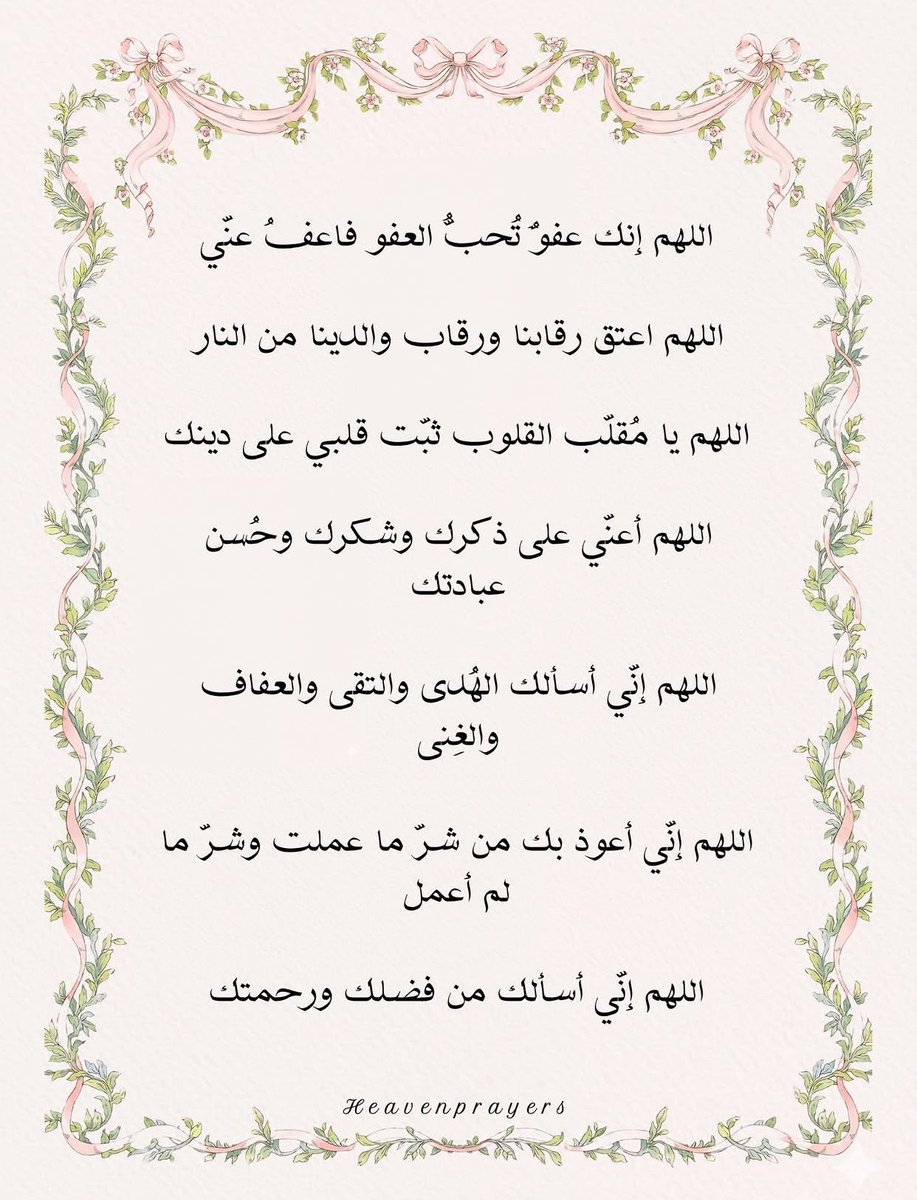 اللهم إنك عفوٌ تُحبُّ العفو فاعفُ عنّي
اللهم اعتق رقابنا ورقاب والدينا من النار
اللهم يا مُقلّب القلوب ثبّت قلبي على دينك
اللهم أعنّي على ذكرك وشكرك وحُسن
عبادتك
اللهم إنّي أسألك الهُدى والتقى والعفاف
والغِنى
اللهم إنّي أعوذ بك من شرّ ما عملت وشرّ ما
لم أعمل
اللهم إنّي أسألك من فضلك ورحمتك
Heavenprayers